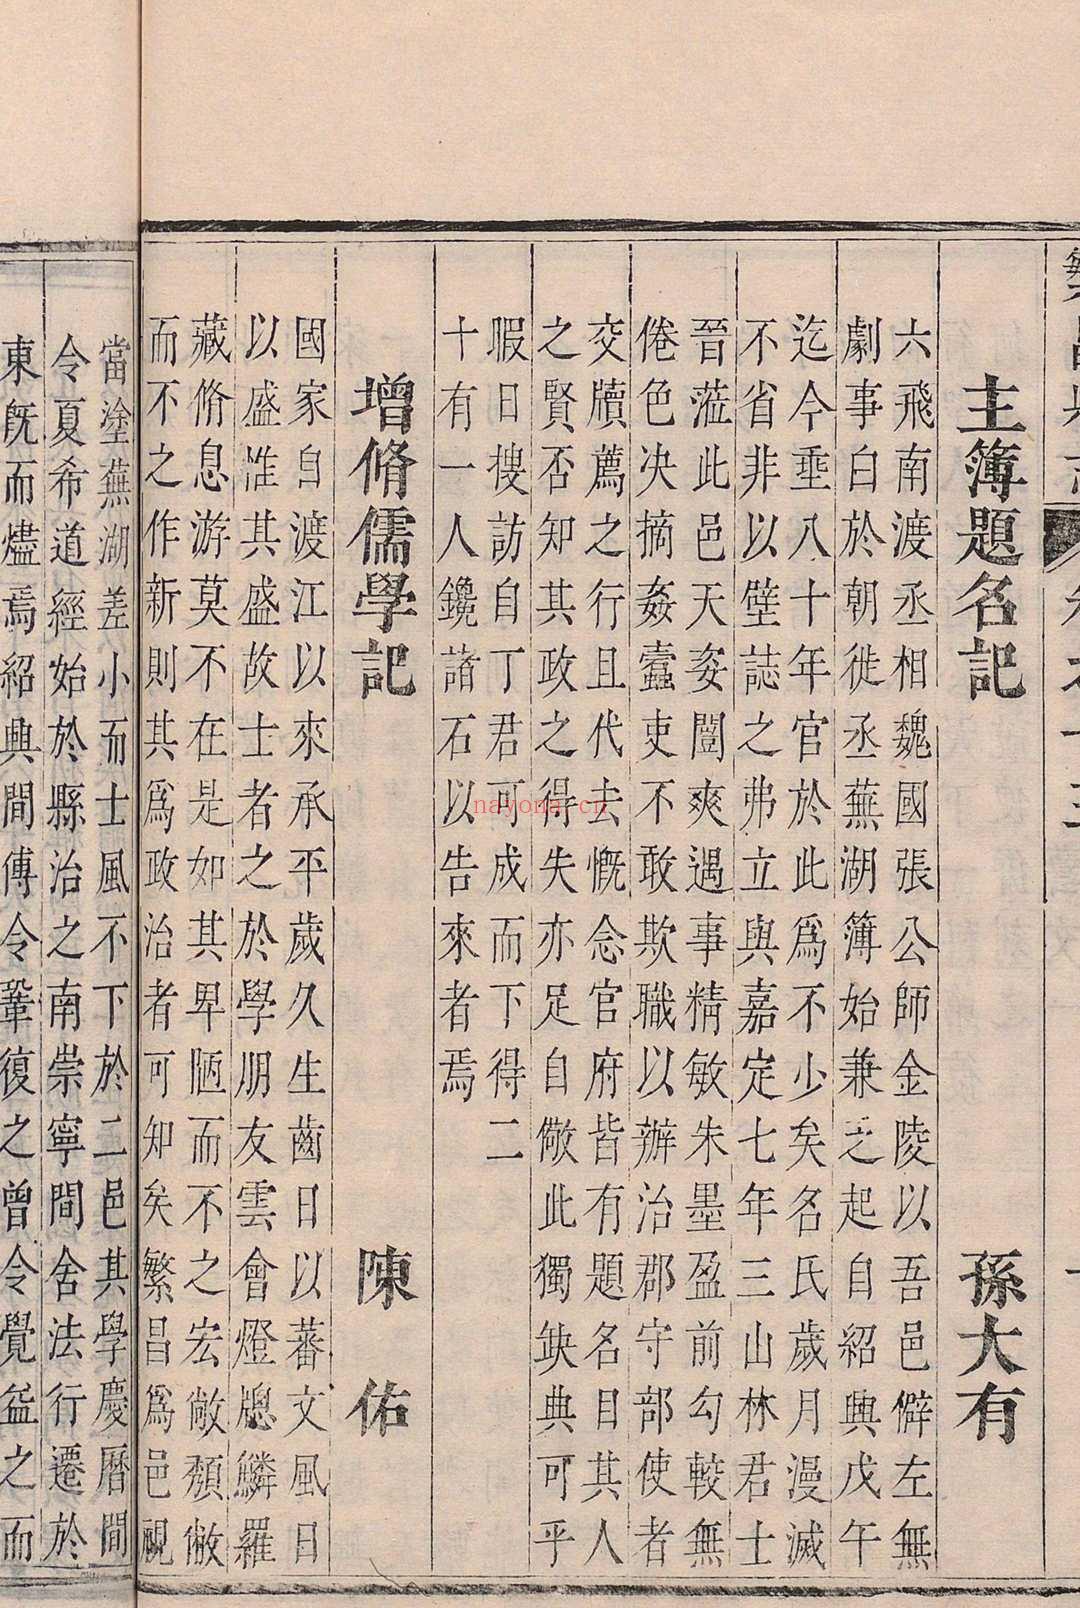 主簿題名記 孫大有
六飛南渡丞相魏國張公師金陵以吾邑僻左無
劇事白於朝徙丞蕪湖簿始兼之起自紹興戊午
迄今垂八十年官於此為不少矣名氏歲月漫滅
不省非以壁誌之弗立與嘉定七年三山林君士
晉蒞此邑天姿闓爽遇事精敏朱墨盈前勾較無
倦色决摘姦蠹吏不敢欺職以辦治郡守部使者
交牘薦之行且代去慨念官府皆有題名目其人
之賢否知其政之得失亦足自儆此獨缺典可乎
暇日搜訪自丁君可成而下得二
十有一人鑱諸石以告來者焉
增脩儒學記 陳佑
國家自渡江以來承平歲久生齒日以蕃文風日
以盛惟其盛故士者之於學朋友雲會燈牕鱗羅
藏脩息游莫不在是如其卑陋而不之宏敞頽敝
而不之作新則其為政治者可知矣繁昌為邑視
當塗蕪湖差小而士風不下於二邑其學慶曆間
令夏希道經始於縣治之南崇寧間舍法行遷於
東旣而燼焉紹興間傅令鞏復之曾令覺益之而
nayona.cn